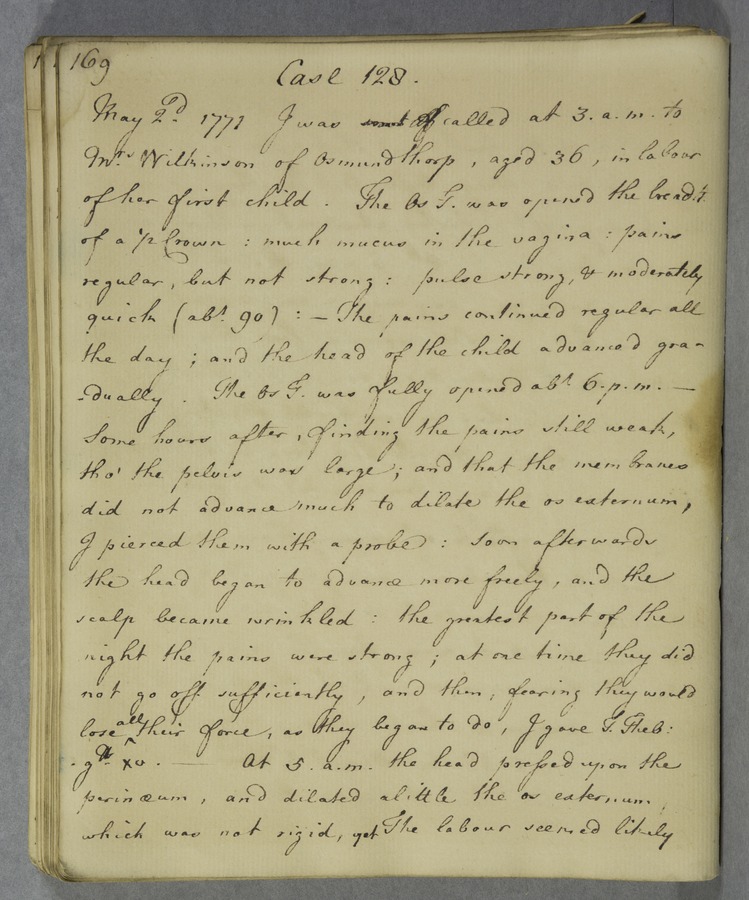 169
Case 128.
May 2d. 1771 I was called at 3. a. m. to
Mrs Wilkinson of Osmundthorp, aged 36, in labour
of her first child. The Os T. was opened the breadth
of a 1/2 Crown : much mucus in the vagina : pains
regular, but not strong : pulse strong, & moderately
quick (abt. 90) : — The pains continued regular all
the day ; and the head of the child advanced gra-
-dually. The Os T. was fully opened abt. 6. p. m. —
Some hours after, finding the pains still weak,
tho' the pelvis was large ; and that the membranes
did not advance much to dilate the os externum,
I pierced them with a probe : soon afterwards
the head began to advance more freely, and the
scalp became wrinkled : the greatest part of the
night the pains were strong ; at one time they did
not go off sufficiently, and then, fearing they would
lose all their force, as they began to do, I gave T. Theb:
gtt xv. — At 5. a. m. the head pressed upon the
perinæum, and dilated a little the os externum,
which was not rigid, yet The labour seemed likely